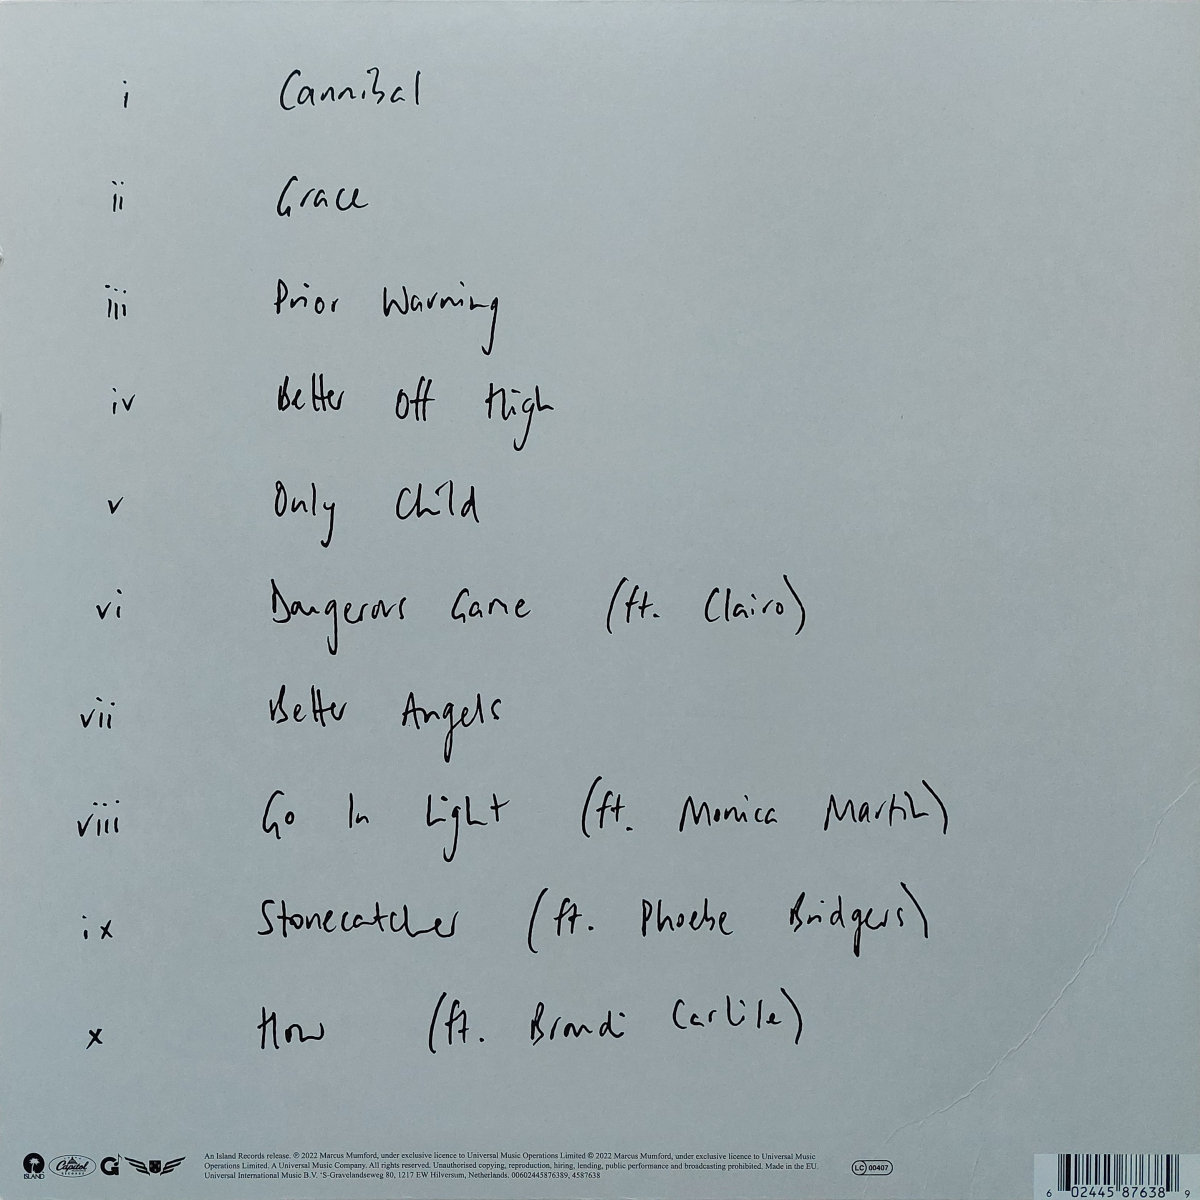 i Cannibal
ii Grace
iii Prior Warning
iv Better Off High
v Only Child
vi Dangerous Game (ft. Clairo)
vii Better Angels
viii Go In Light (ft. Monica Martin)
ix Stonecatcher (ft. Phoebe Bridgers)
x How (ft. Brandi Carlile)
ISLAND Capitol RECORDS G
An Island Records release. ℗ 2022 Marcus Mumford, under exclusive licence to Universal Music Operations Limited © 2022 Marcus Mumford, under exclusive licence to Universal Music
Operations Limited. A Universal Music Company. All rights reserved. Unauthorised copying, reproduction, hiring, lending, public performance and broadcasting prohibited. Made in the EU.
Universal International Music B.V. 'S-Gravelandseweg 80, 1217 EW Hilversum, Netherlands. 00602445876389, 4587638
LC 00407
6 02445 87638 9